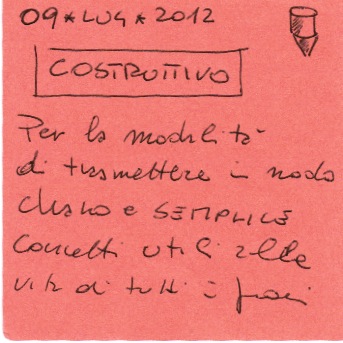 09*LUG*2012
COSTRUTTIVO
Per la modalità
di trasmettere in modo
chiaro e SEMPLICE
concetti utili alla
vita di tutti i giorni